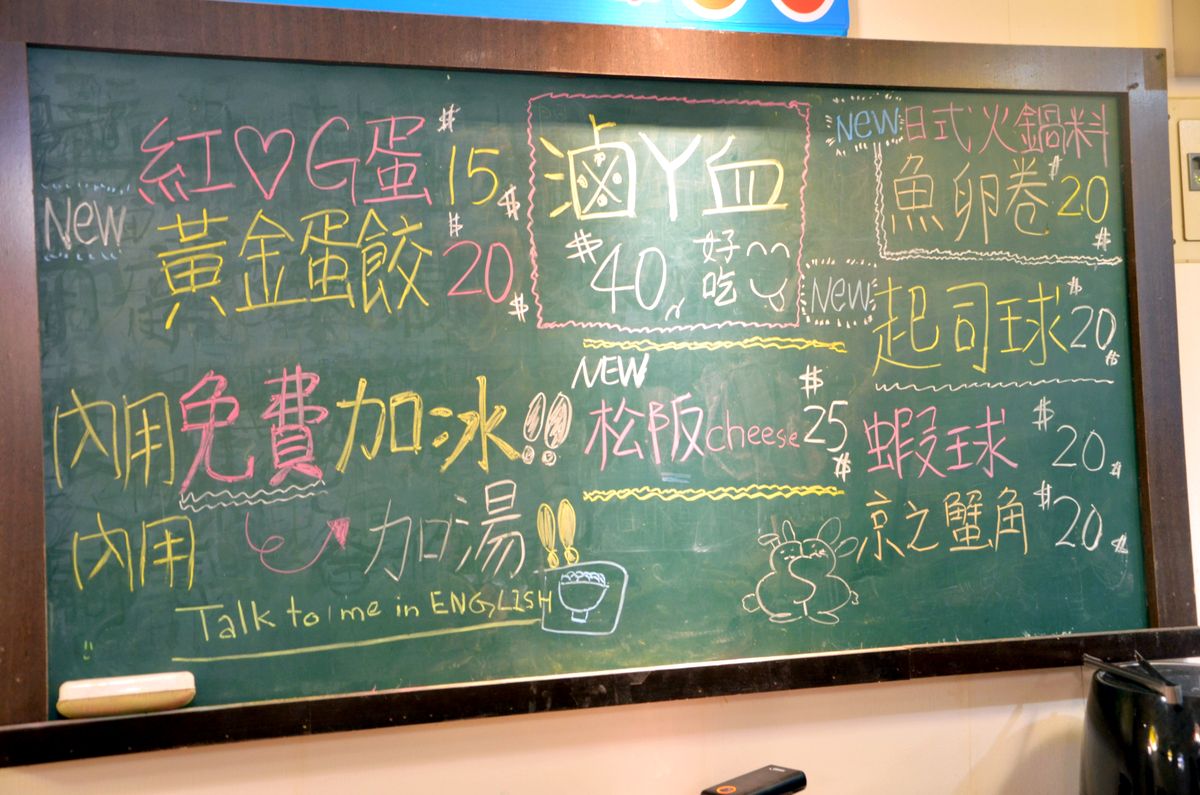 紅♡G蛋 $15
NEW 黃金蛋餃 $20
滷丫血
$40 好吃
NEW 日式火鍋料
魚卵卷 $20
NEW 起司球 $20
內用免費加冰!!
內用 加湯!!
Talk to me in ENGLISH
NEW
松阪cheese $25
蝦球 $20
京之蟹角 $20